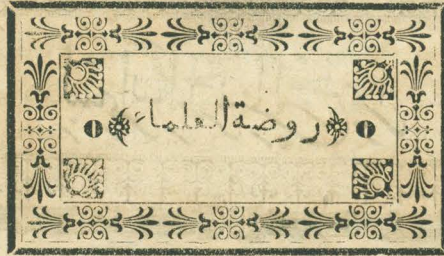 روضة العلماء